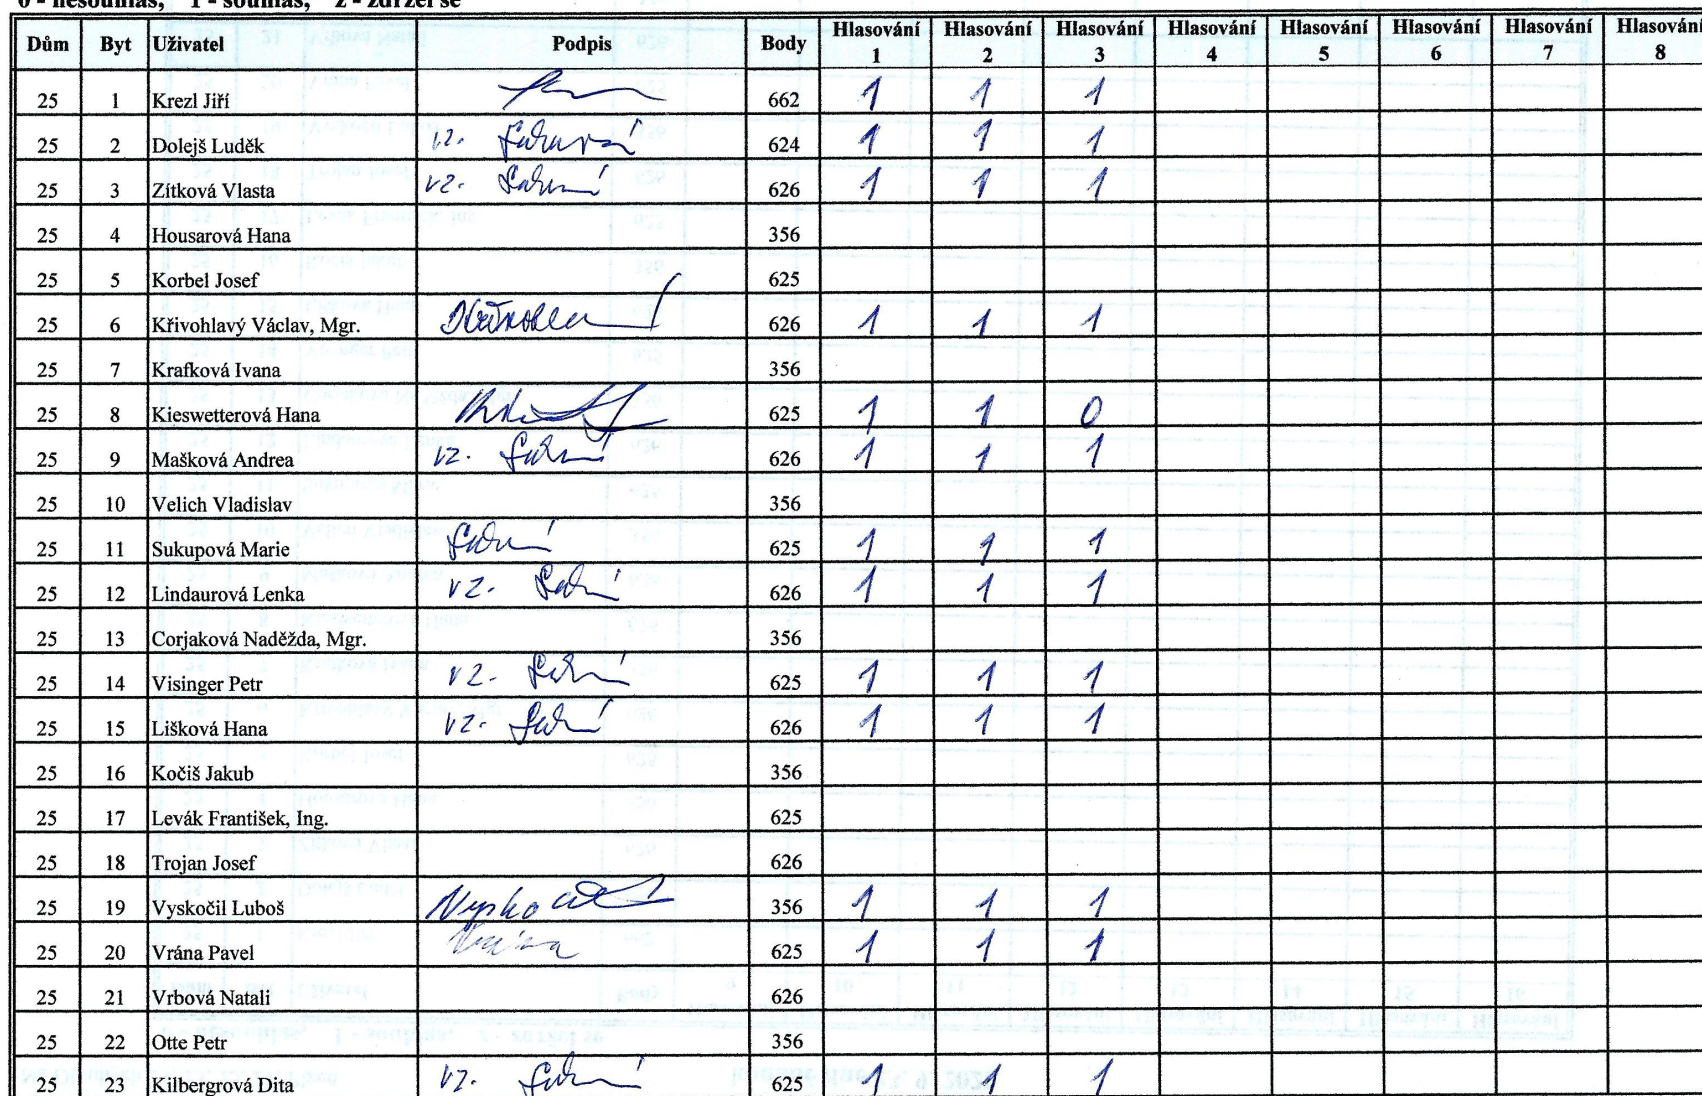 0 - nesouhlas, 1 - souhlas, z - zdržel se
Dům Byt Uživatel Podpis Body Hlasování 1 Hlasování 2 Hlasování 3 Hlasování 4 Hlasování 5 Hlasování 6 Hlasování 7 Hlasování 8
25 1 Krezl Jiří 662 1 1 1
25 2 Dolejš Luděk vz. 624 1 1 1
25 3 Zítková Vlasta vz. 626 1 1 1
25 4 Housarová Hana 356
25 5 Korbel Josef 625
25 6 Křivohlavý Václav, Mgr. 626 1 1 1
25 7 Krafková Ivana 356
25 8 Kieswetterová Hana 625 1 1 0
25 9 Mašková Andrea vz. 626 1 1 1
25 10 Velich Vladislav 356
25 11 Sukupová Marie 625 1 1 1
25 12 Lindaurová Lenka vz. 626 1 1 1
25 13 Corjaková Naděžda, Mgr. 356
25 14 Visinger Petr vz. 625 1 1 1
25 15 Lišková Hana vz. 626 1 1 1
25 16 Kočiš Jakub 356
25 17 Levák František, Ing. 625
25 18 Trojan Josef 626
25 19 Vyskočil Luboš 356 1 1 1
25 20 Vrána Pavel Vrána 625 1 1 1
25 21 Vrbová Natali 626
25 22 Otte Petr 356
25 23 Kilbergrová Dita vz. 625 1 1 1